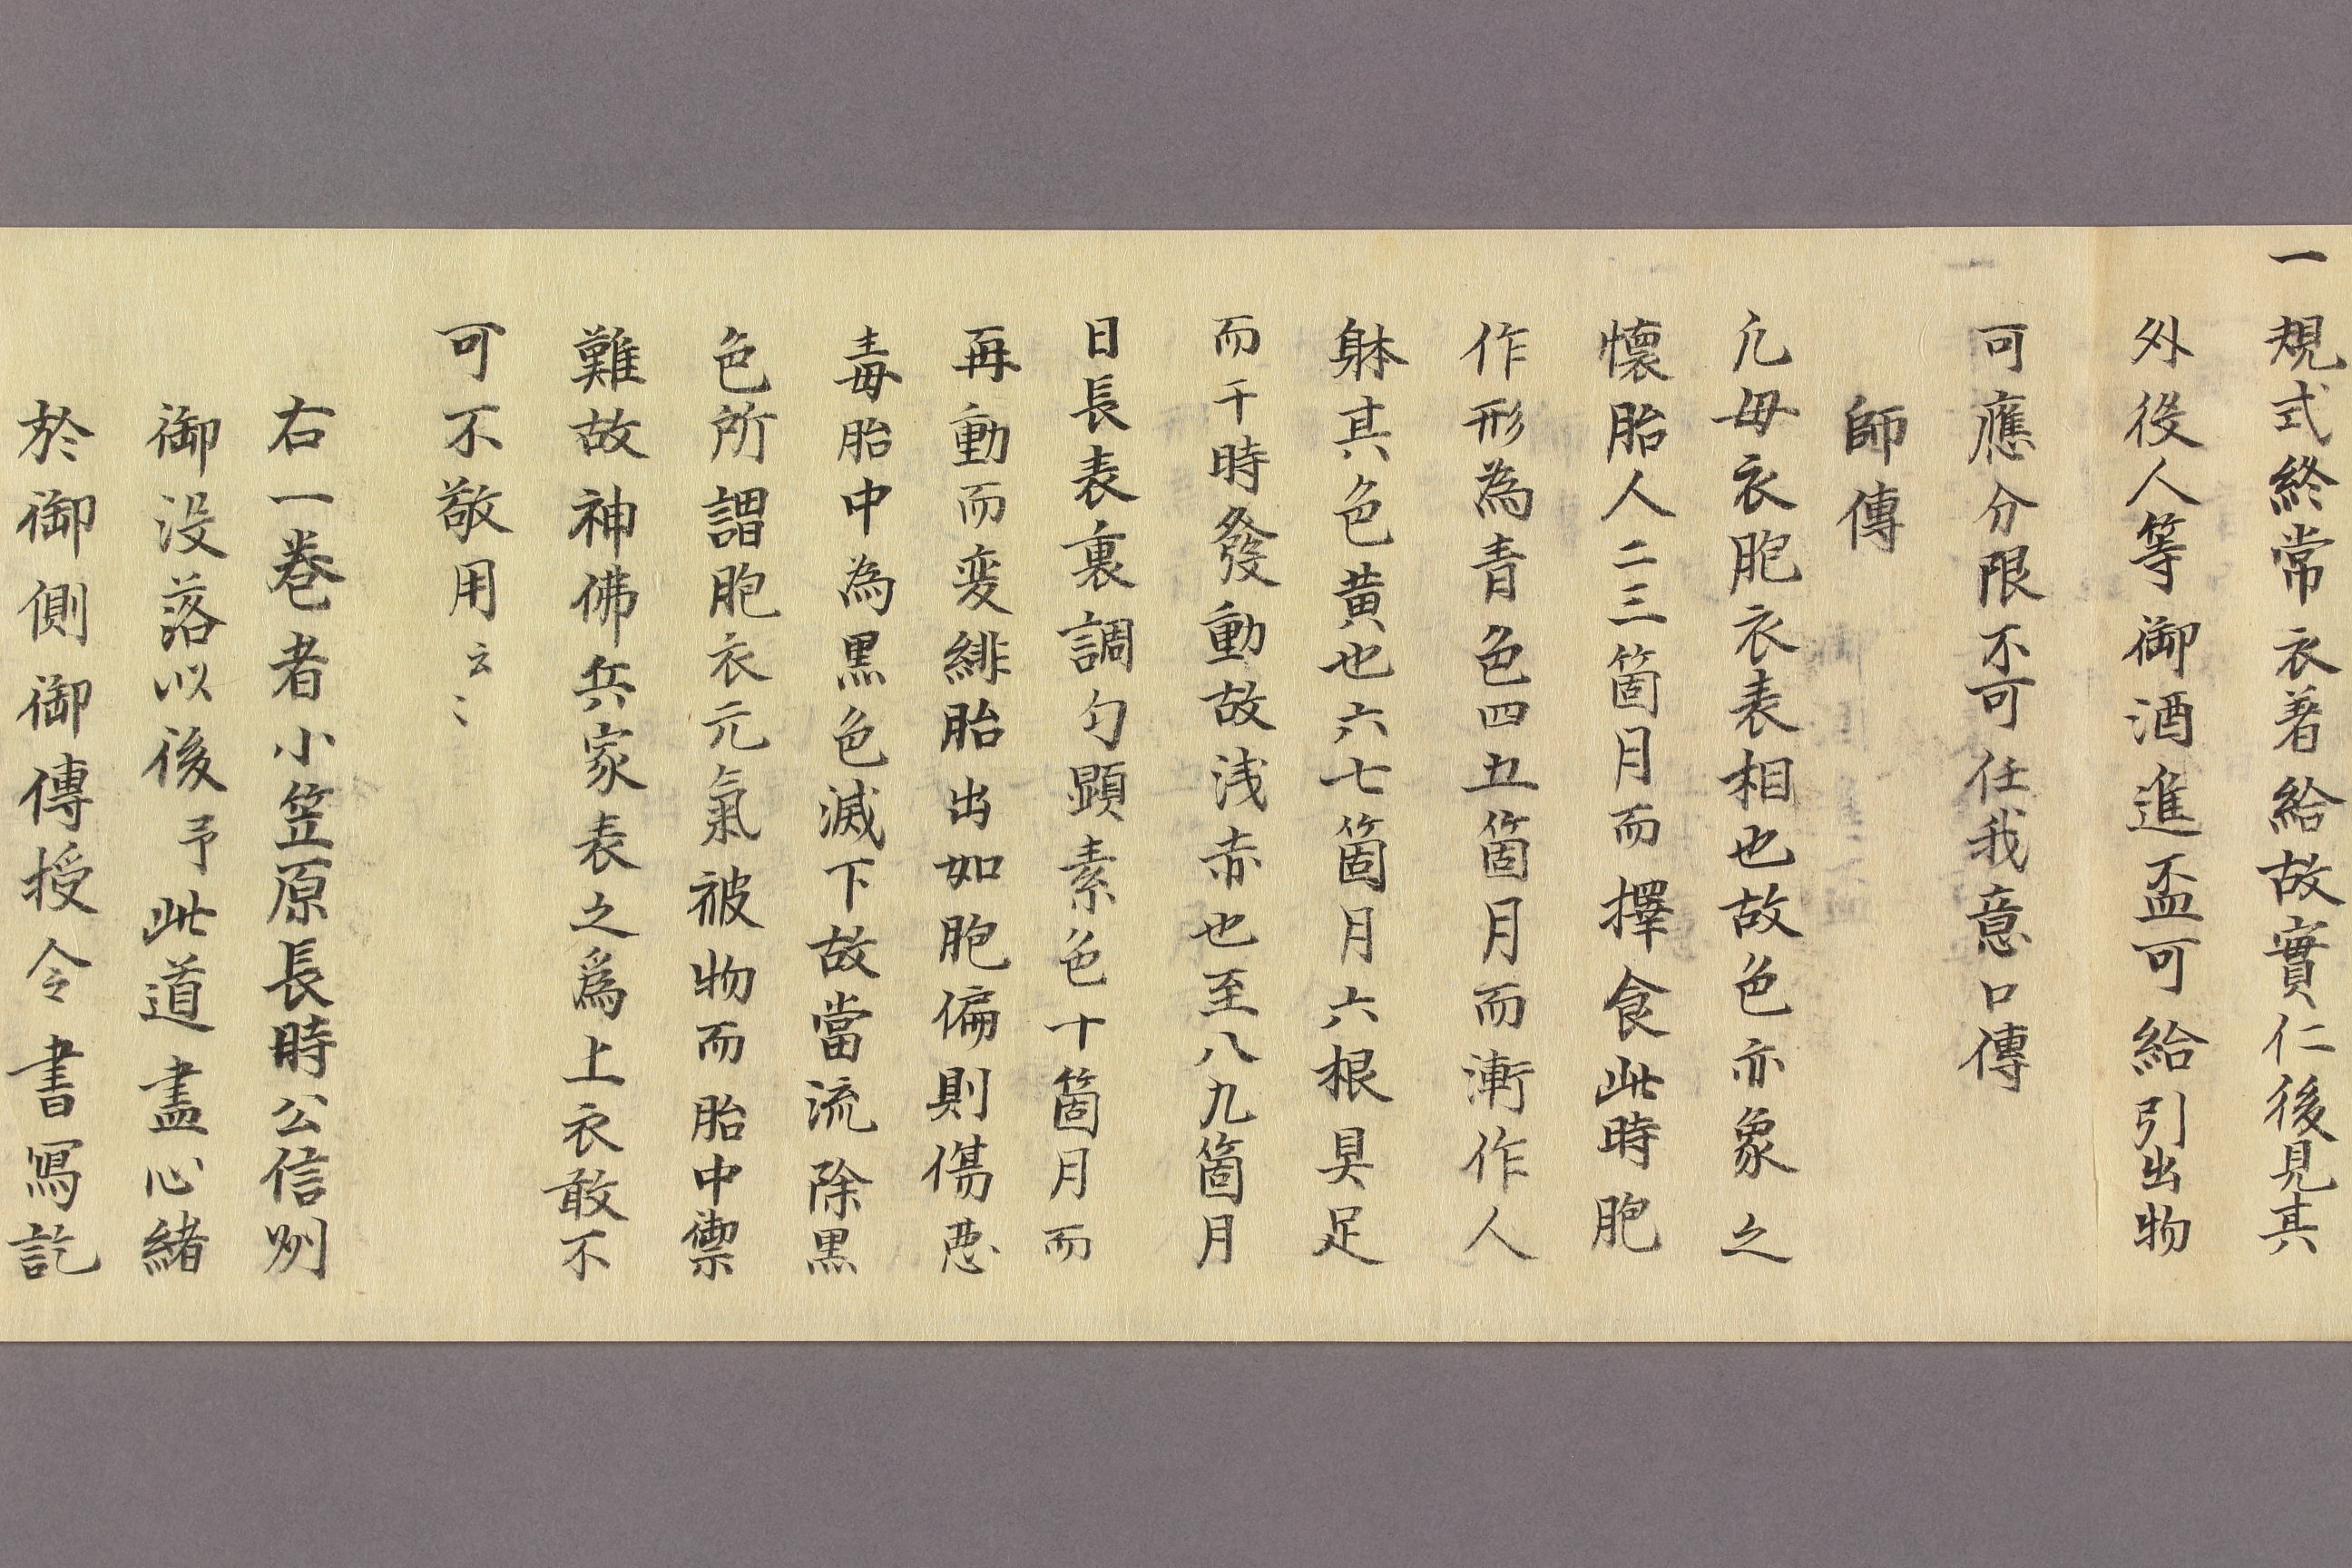 一規式終常衣著給故實仁後見其
外役人等御酒進盃可給引出物
可應分限不可任我意口傳
師傳
凢母衣胞衣表相也故色亦象之
懐胎人二三箇月而擇食此時胞
作形為青色四五箇月而漸作人
躰其色黄也六七箇月六根具足
而干時發動故浅赤也至八九箇月
日長表裏調匀顕素色十箇月而
再動而変緋胎出如胞偏則傷悪
毒胎中為黒色滅下故當流除黒
色所謂胞衣元氣被物而胎中禦
難故神佛兵家表之爲上衣敢不
可不敬用云〻
右一巻者小笠原長時公信州
御没落以後予此道盡心緒
於御側御傳授令書寫訖